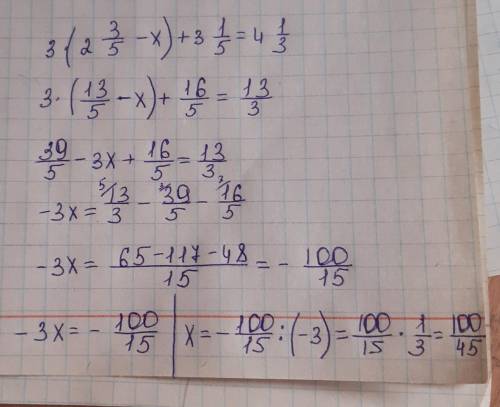 3(2 3/5 - x) + 3 1/5 = 4 1/3
3·(13/5 - x) + 16/5 = 13/3
39/5 - 3x + 16/5 = 13/3
-3x = 5/ 13/3 - 3/ 39/5 - 3/ 16/5
-3x = (65-117-48)/15 = - 100/15
-3x = - 100/15 | x = - 100/15 : (-3) = 100/15 · 1/3 = 100/45